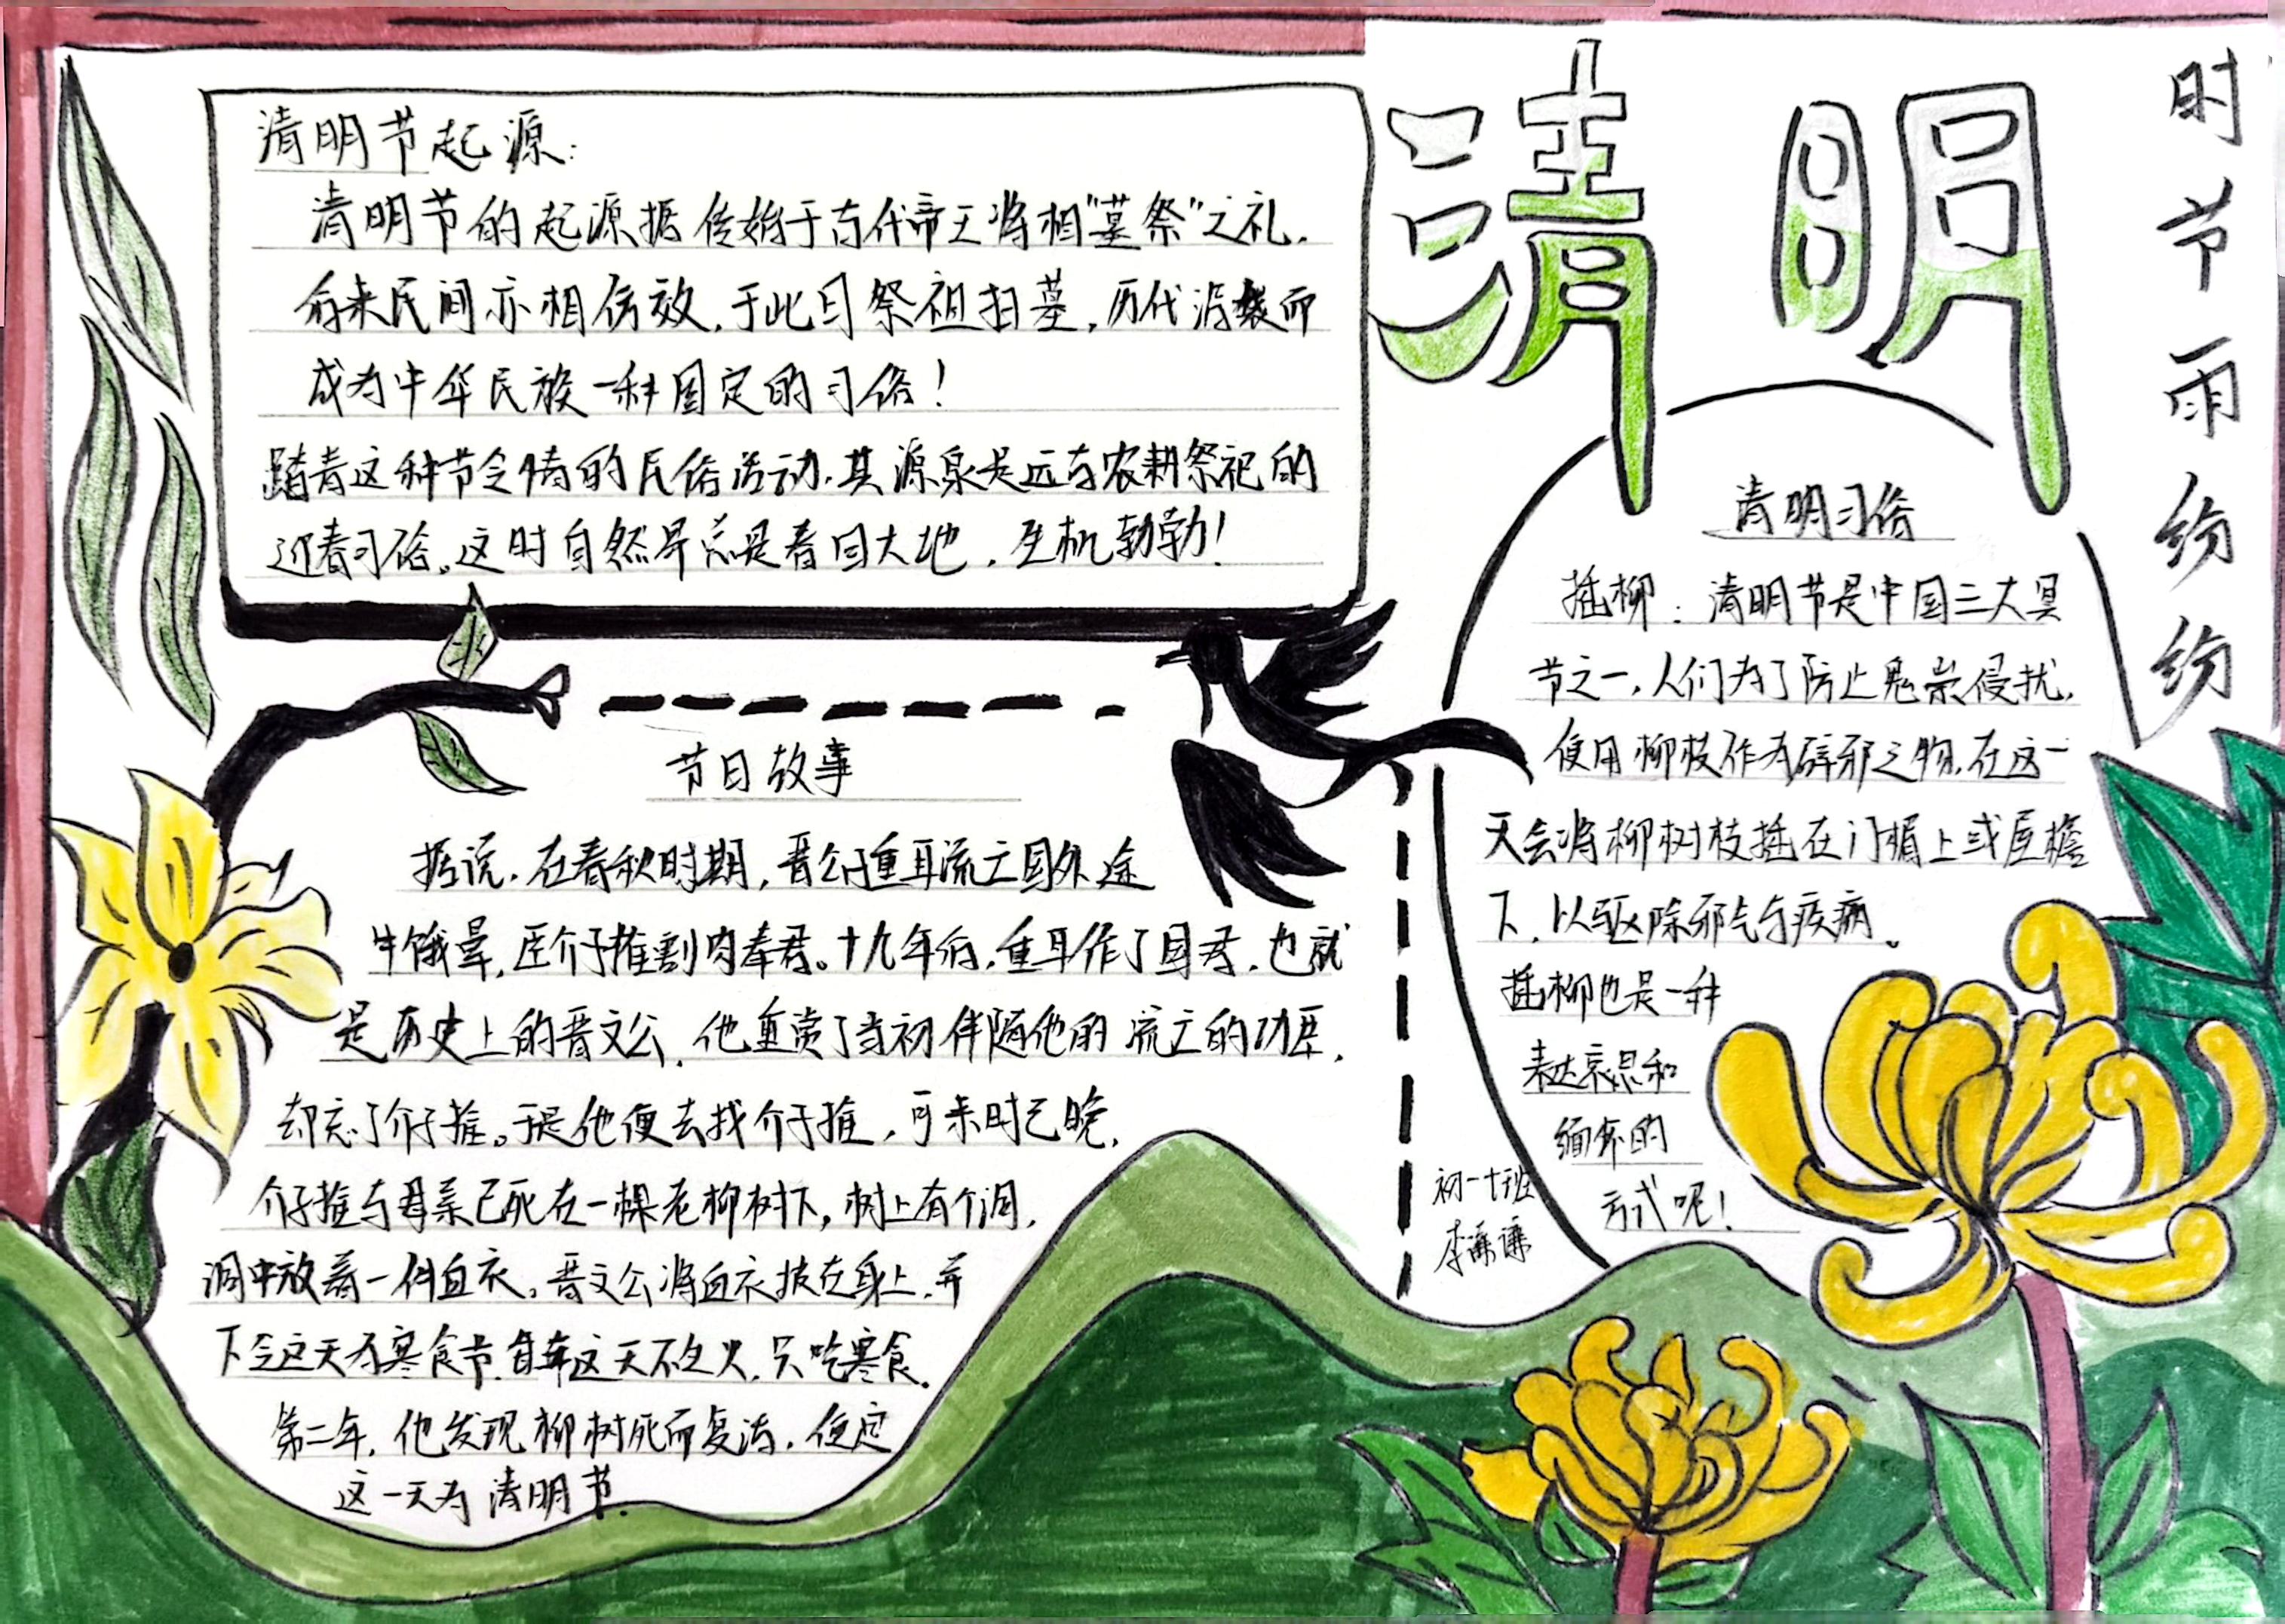 清明
时节雨纷纷
清明节起源：
清明节的起源据传始于古代帝王将相"墓祭"之礼，
后来民间亦相仿效，于此日祭祖扫墓，历代沿袭而
成为中华民族一种固定的习俗！
踏青这种节令性的民俗活动，其源泉是远古农耕祭祀的
迎春习俗。这时自然界总是春回大地，生机勃勃！
节日故事
据说，在春秋时期，晋公子重耳流亡国外途
中饿晕，臣介子推割肉奉君。十九年后，重耳作了国君，也就
是历史上的晋文公，他重赏了当初伴随他的流亡的功臣，
却忘了介子推。于是他便去找介子推，可来时已晚，
介子推与母亲已死在一棵老柳树下，树上有个洞，
洞中放着一件血衣。晋文公将血衣披在身上，并
下令这天为寒食节，每年这天不生火，只吃寒食。
第二年，他发现柳树死而复活，便定
这一天为清明节.
清明习俗
插柳：清明节是中国三大冥
节之一，人们为了防止鬼祟侵扰，
便用柳枝作为辟邪之物，在这一
天会将柳树枝插在门楣上或屋檐
下，以驱除邪气与疾病。
插柳也是一种
表达哀思和
缅怀的
方式呢！
初一十班
李濂谦